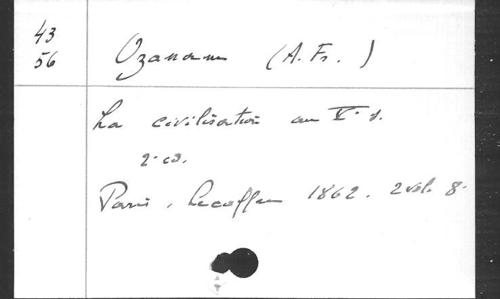 43
56
Ozanam (A. Fr. )
La civilisation au Ve s.
2e éd.
Paris, Lecoffre 1862. 2 vol. 8°